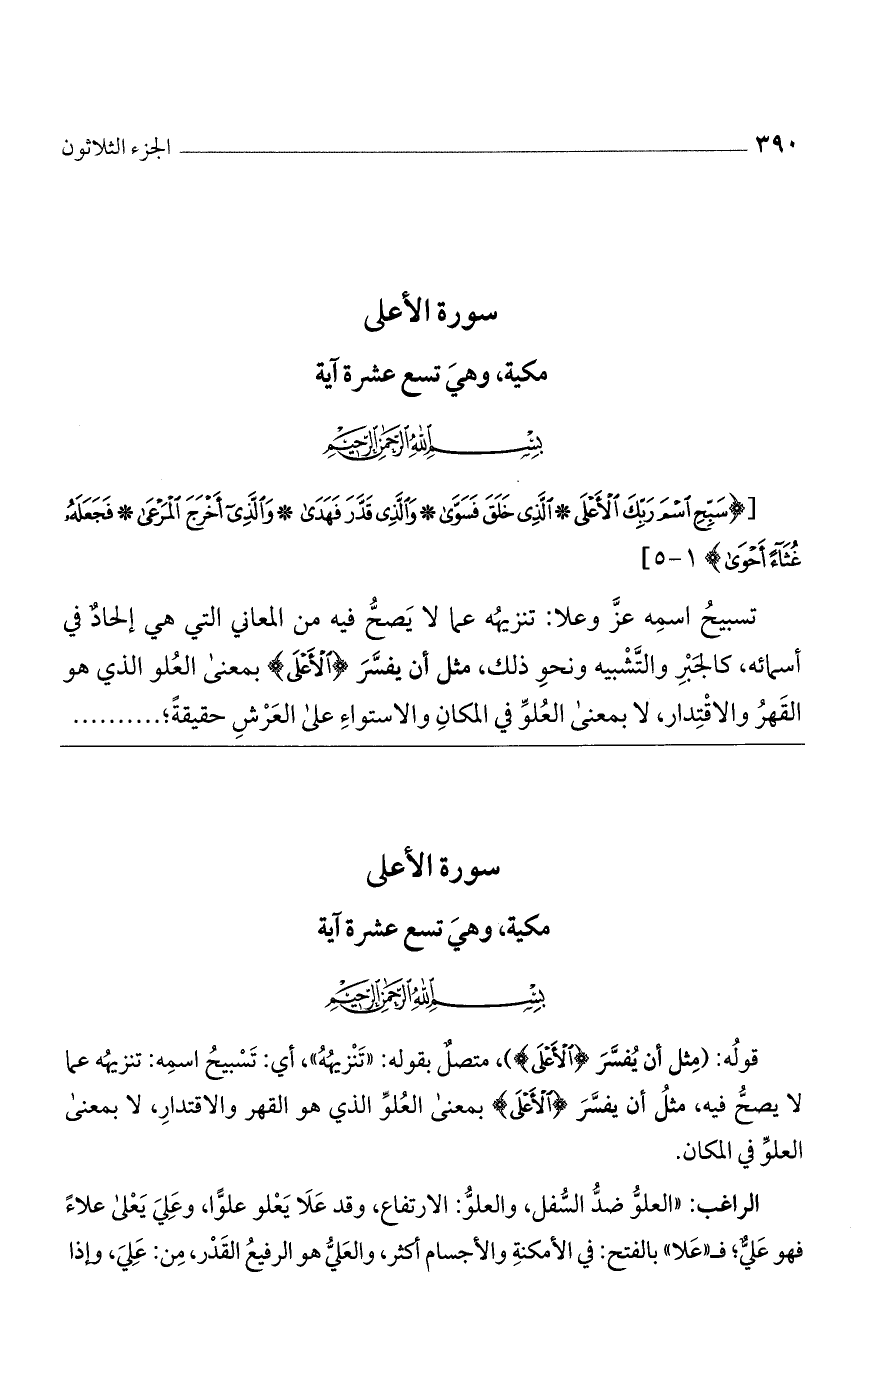 ٣٩٠ الجزء الثلاثون
سورة الأعلى
مكية، وهيَ تسع عشرة آية
بِسْمِ اللَّهِ الرَّحْمَٰنِ الرَّحِيمِ
[﴿سَبِّحِ ٱسْمَ رَبِّكَ ٱلْأَعْلَى * ٱلَّذِى خَلَقَ فَسَوَّىٰ * وَٱلَّذِى قَدَّرَ فَهَدَىٰ * وَٱلَّذِىٓ أَخْرَجَ ٱلْمَرْعَىٰ * فَجَعَلَهُۥ
غُثَآءً أَحْوَىٰ﴾ ١-٥]
تسبيحُ اسمِه عزَّ وعلا: تنزيهُه عما لا يَصحُّ فيه من المعاني التي هي إلحادٌ في
أسمائه، كالجَبْرِ والتَّشْبيه ونحوِ ذلك، مثل أن يفسَّرَ ﴿ٱلْأَعْلَى﴾ بمعنىٰ العُلو الذي هو
القَهرُ والاقْتِدار، لا بمعنىٰ العُلوِّ في المكانِ والاستواءِ علىٰ العَرْشِ حقيقةً؛..........
سورة الأعلى
مكية، وهيَ تسع عشرة آية
بِسْمِ اللَّهِ الرَّحْمَٰنِ الرَّحِيمِ
قولُه: (مِثل أن يُفسَّرَ ﴿ٱلْأَعْلَى﴾)، متصلٌ بقوله: «تَنْزيهُهُ»، أي: تَسْبيحُ اسمِه: تنزيهُه عما
لا يصحُّ فيه، مثلُ أن يفسَّرَ ﴿ٱلْأَعْلَى﴾ بمعنىٰ العُلوِّ الذي هو القهر والاقتدارِ، لا بمعنىٰ
العلوِّ في المكان.
الراغب: «العلوُّ ضدُّ السُّفل، والعلوُّ: الارتفاع، وقد عَلَا يَعْلو علوًّا، وعَلِيَ يَعْلىٰ علاءً
فهو عَليٌّ؛ فـ«عَلا» بالفتح: في الأمكنةِ والأجسام أكثر، والعَليُّ هو الرفيعُ القَدْر، مِن: عَلِيَ، وإذا